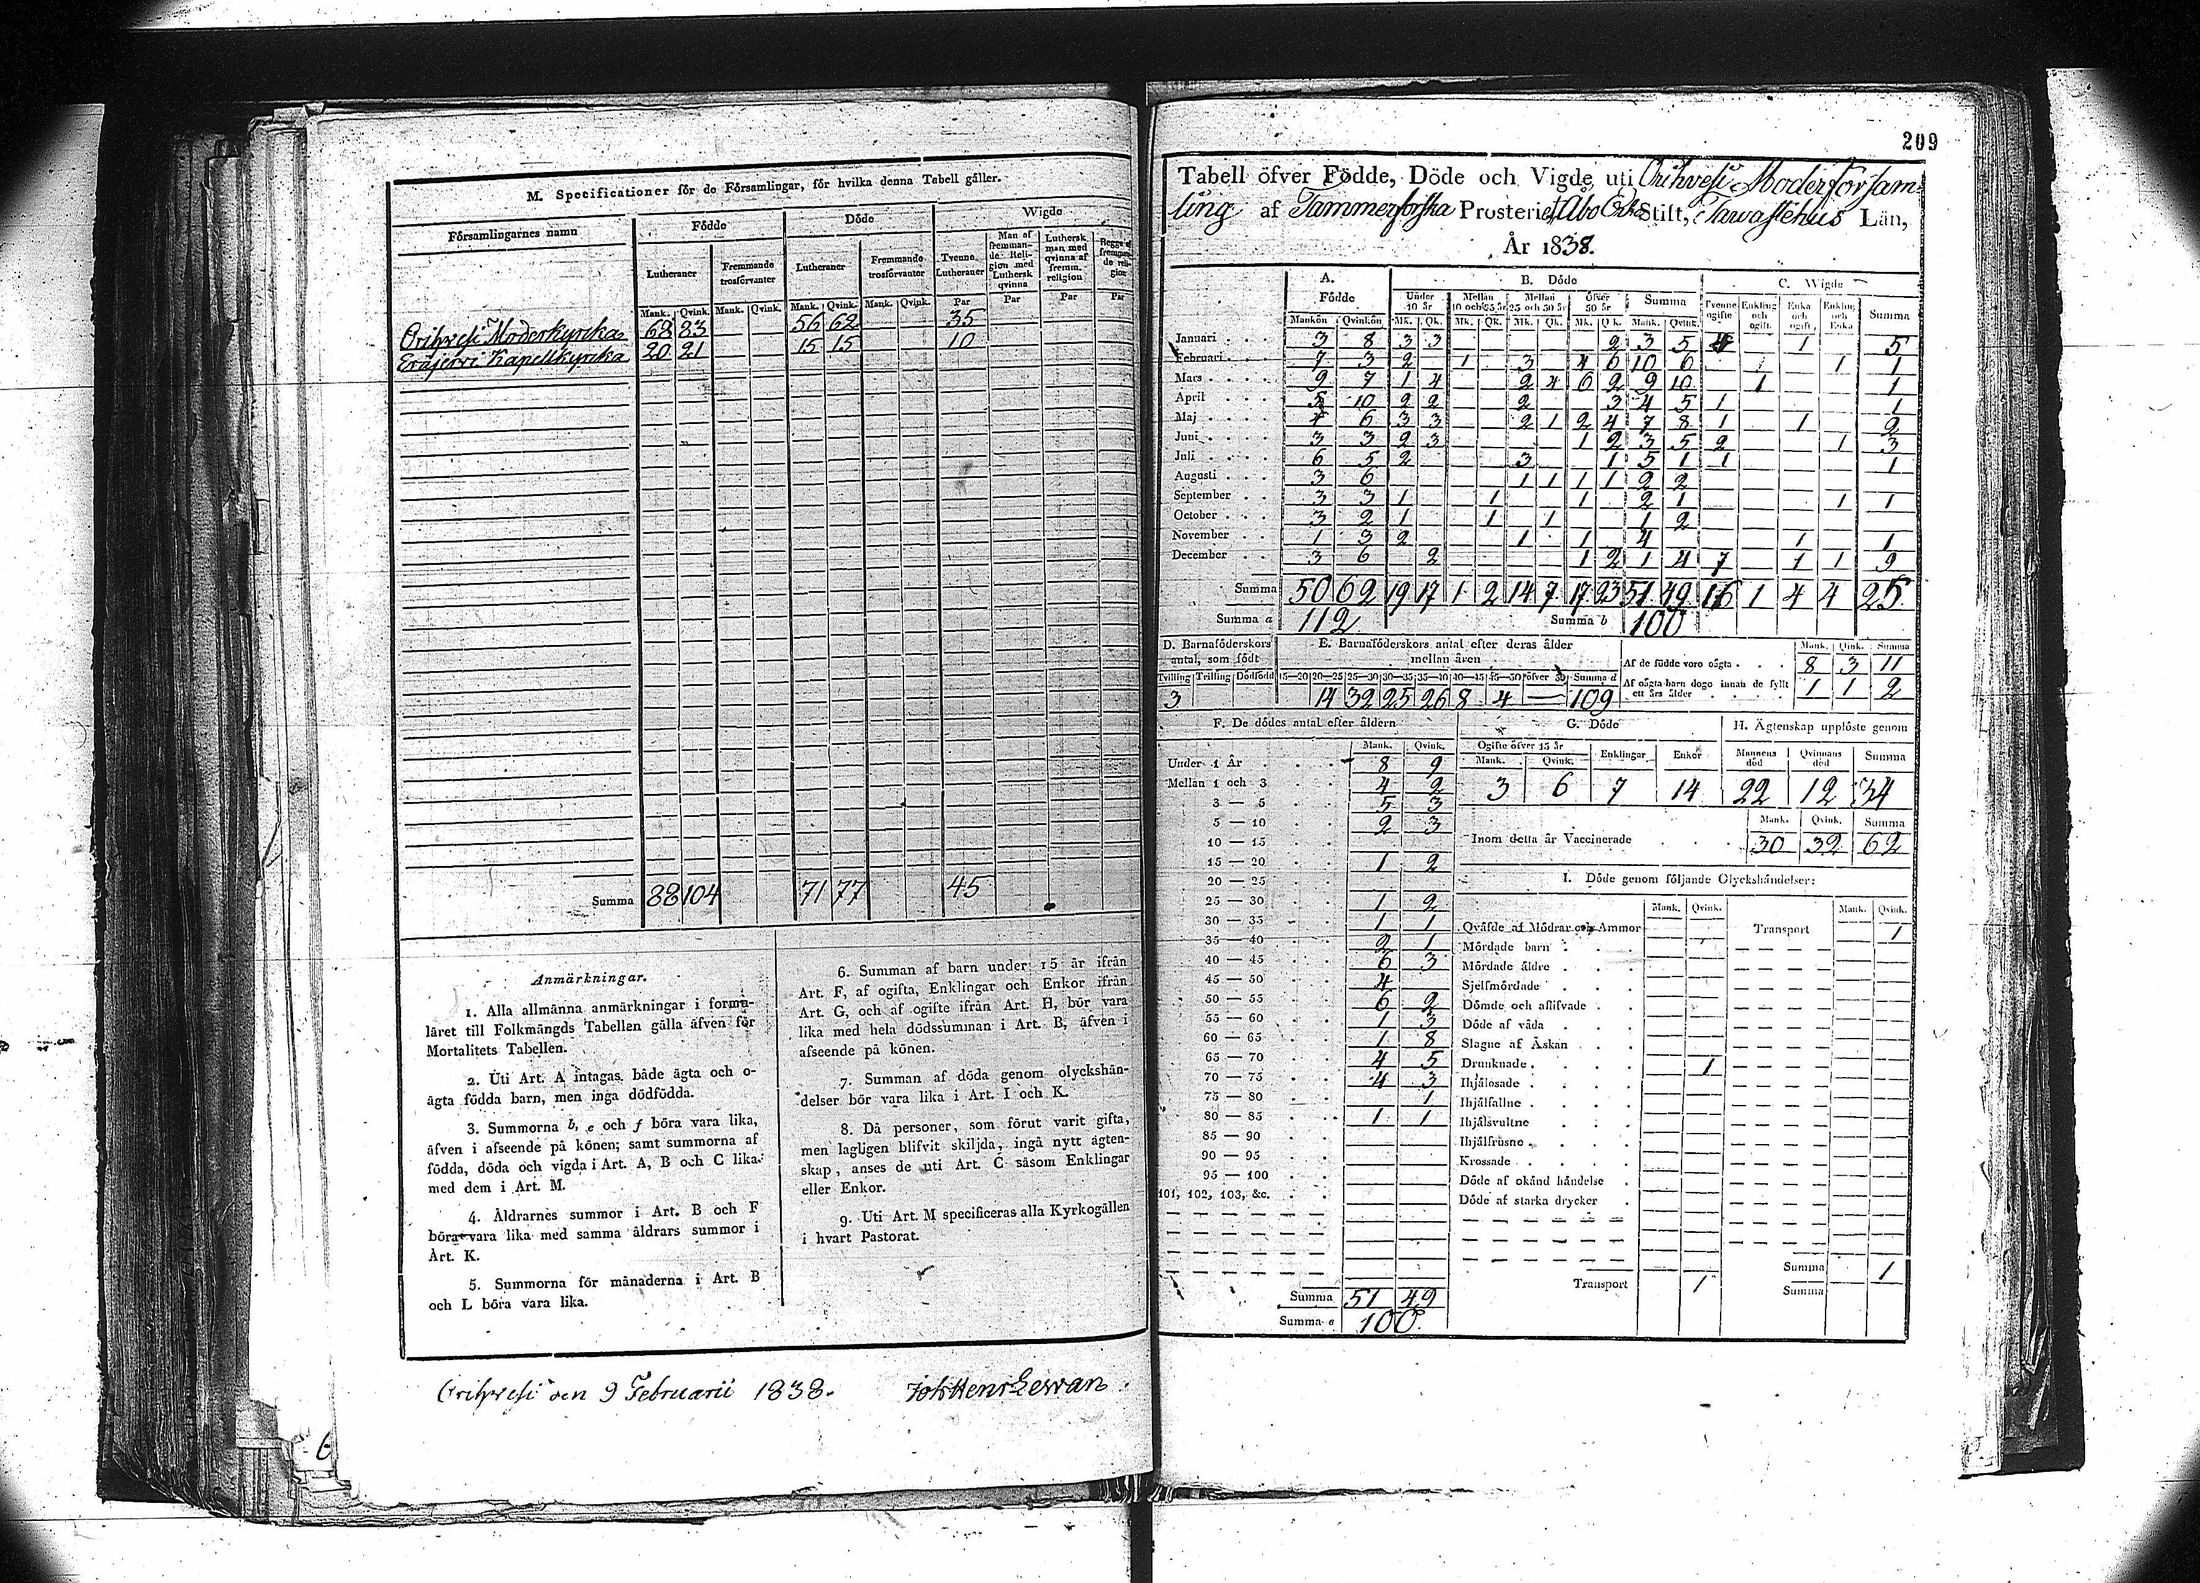 M. Specificationer för de Församlingar, för hvilka denna Tabell gäller.
Församlingarnes namn Födde Döde Wigde
Lutheraner Fremmande trosförvanter Lutheraner Fremmande trosförvanter Tvenne Lutheraner Man af fremmande Religion med Luthersk qvinna Luthersk man med qvinna af fremm. religion Begge af fremmande religion
Mank. Qvink. Mank. Qvink. Mank. Qvink. Mank. Qvink. Par Par Par Par
Orihvesi Moderkyrcka 68 83 56 62 35
Eräjervi Kapellkyrcka 20 21 15 15 10
Summa 88 104 71 77 45
Anmärkningar.
1. Alla allmänna anmärkningar i formu-
läret till Folkmängds Tabellen gälla äfven för
Mortalitets Tabellen.
2. Uti Art. A intagas både ägta och o-
ägta födda barn, men inga dödfödda.
3. Summorna b, e och f böra vara lika,
äfven i afseende på könen; samt summorna af
födda, döda och vigda i Art. A, B och C lika
med dem i Art. M.
4. Åldrarnes summor i Art. B och F
böra vara lika med samma åldrars summor i
Art. K.
5. Summorna för månaderna i Art. B
och L böra vara lika.
6. Summan af barn under 15 år ifrån
Art. F, af ogifta, Enklingar och Enkor ifrån
Art. G, och af ogifte ifrån Art. H, bör vara
lika med hela dödssumman i Art. B, äfven i
afseende på könen.
7. Summan af döda genom olyckshän-
delser bör vara lika i Art. I och K.
8. Då personer, som förut varit gifta,
men lagligen blifvit skiljda, ingå nytt ägten-
skap, anses de uti Art. C såsom Enklingar
eller Enkor.
9. Uti Art. M specificeras alla Kyrkogällen
i hvart Pastorat.
Orihvesi den 9 Februarii 1838.
209
Tabell öfver Födde, Döde och Vigde uti Orihvesi Moderförsam-
ling af Tammerforska Prosteriet, Åbo Stift, Tawastehus Län,
År 1838.
A. Födde B. Döde C. Wigde
Under 10 år Mellan 10 och 25 år Mellan 25 och 50 år Öfver 50 år Summa Tvenne ogifte Enkling och ogift Enka och ogift Enkling och Enka Summa
Mankön Qvinkön Mk. Qk. Mk. Qk. Mk. Qk. Mk. Qk. Mank. Qvink.
Januari 3 8 3 3 2 3 5 4 1 5
Februari 7 3 2 1 3 4 6 10 6 1 1
Mars 9 7 1 4 2 4 6 2 9 10 1 1
April 5 10 2 2 2 3 4 5 1 1
Maj 4 6 3 3 2 1 2 4 7 8 1 1 2
Juni 3 3 2 3 1 2 3 5 2 1 3
Juli 6 5 2 3 1 5 1 1 1
Augusti 3 6 1 1 1 1 2 2
September 3 3 1 1 1 2 1 1 1
October 3 2 1 1 1 1 2
November 1 3 2 1 1 4 1 1
December 3 6 2 1 2 1 4 7 1 1 9
Summa 50 62 19 17 1 2 14 7 17 23 51 49 16 1 4 4 25
Summa a 112 Summa b 100
D. Barnaföderskors antal, som födt
Tvilling Trilling Dödfödd
3
E. Barnaföderskors antal efter deras ålder
mellan åren
15—20 20—25 25—30 30—35 35—40 40—45 45—50 öfver 50 Summa d
14 32 25 26 8 4 — 109
Mank. Qink. Summa
Af de födde voro oägta 8 3 11
Af oägta barn dogo innan de fyllt ett års ålder 1 1 2
F. De dödes antal efter åldern
Mank. Qvink.
Under 1 År 8 9
Mellan 1 och 3 4 2
3 — 5 5 3
5 — 10 2 3
10 — 15
15 — 20 1 2
20 — 25
25 — 30 1 2
30 — 35 1 1
35 — 40 2 1
40 — 45 6 3
45 — 50 4
50 — 55 6 2
55 — 60 1 3
60 — 65 1 8
65 — 70 4 5
70 — 75 4 3
75 — 80 1
80 — 85 1 1
85 — 90
90 — 95
95 — 100
101, 102, 103, &c.
Summa 51 49
Summa e 100
G. Döde
Ogifte öfver 15 år Enklingar Enkor
Mank. Qvink.
3 6 7 14
H. Ägtenskap upplöste genom
Mannens död Qvinnans död Summa
22 12 34
Mank. Qvink. Summa
Inom detta år Vaccinerade 30 32 62
I. Döde genom följande Olyckshändelser:
Mank. Qvink. Mank. Qvink.
Qväfde af Mödrar och Ammor Transport 1
Mördade barn
Mördade äldre
Sjelfmördade
Dömde och aflifvade
Döde af våda
Slagne af Åskan
Drunknade 1
Ihjälosade
Ihjälfallne
Ihjälsvultne
Ihjälfrusne
Krossade
Döde af okänd händelse
Döde af starka drycker
Summa 1
Transport 1 Summa